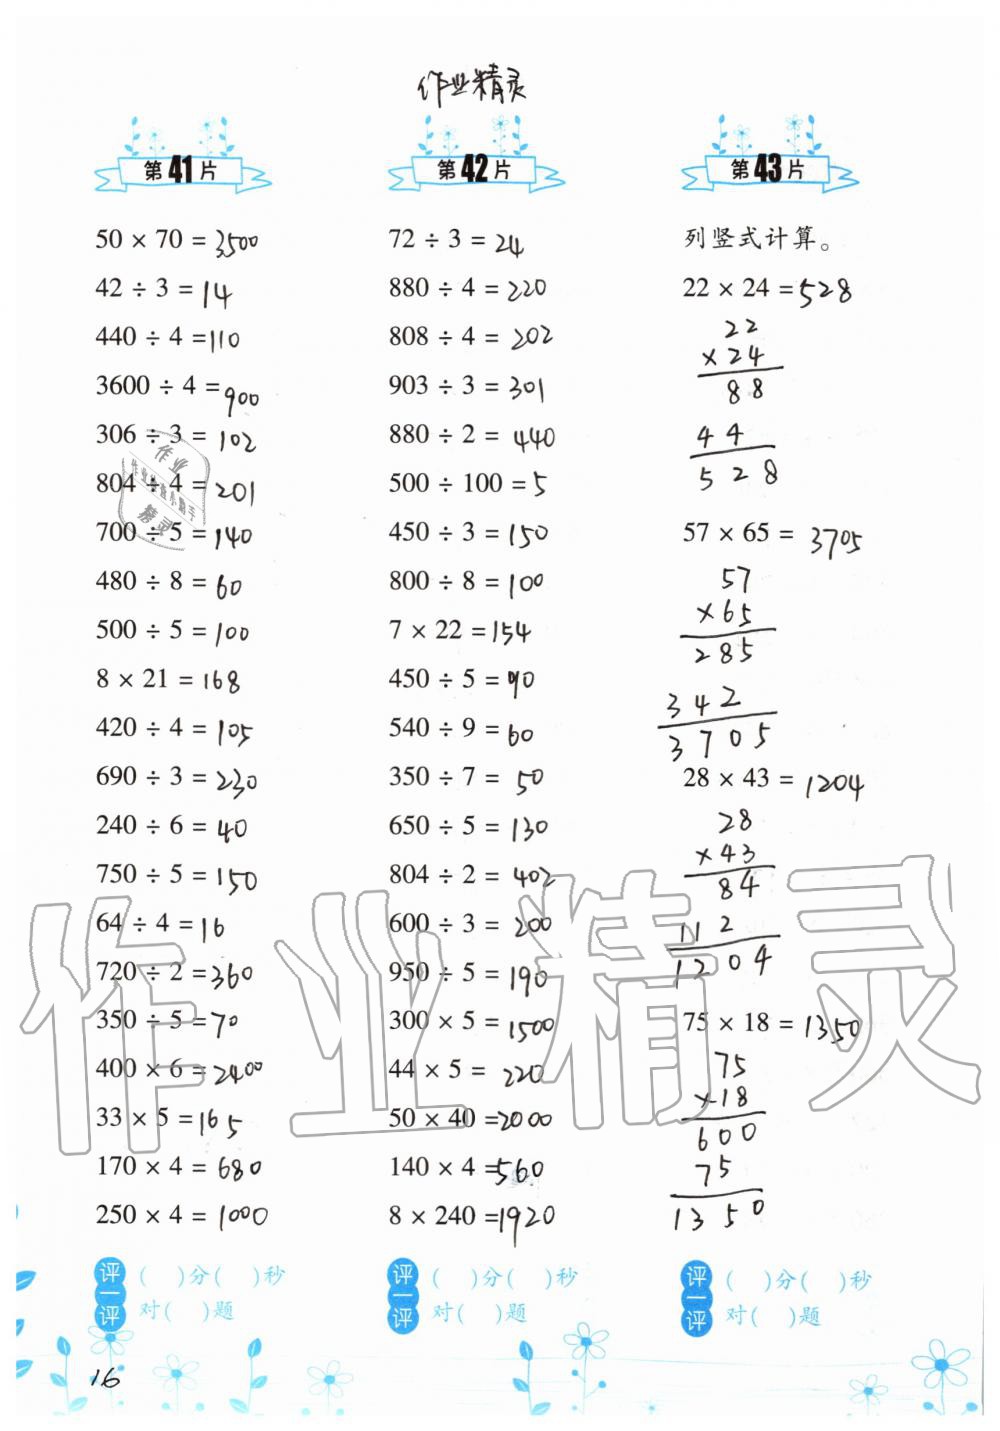 作业精灵
第41片
50 × 70 = 3500
42 ÷ 3 = 14
440 ÷ 4 = 110
3600 ÷ 4 = 900
306 ÷ 3 = 102
804 ÷ 4 = 201
700 ÷ 5 = 140
480 ÷ 8 = 60
500 ÷ 5 = 100
8 × 21 = 168
420 ÷ 4 = 105
690 ÷ 3 = 230
240 ÷ 6 = 40
750 ÷ 5 = 150
64 ÷ 4 = 16
720 ÷ 2 = 360
350 ÷ 5 = 70
400 × 6 = 2400
33 × 5 = 165
170 × 4 = 680
250 × 4 = 1000
评一评
( )分( )秒
对( )题
第42片
72 ÷ 3 = 24
880 ÷ 4 = 220
808 ÷ 4 = 202
903 ÷ 3 = 301
880 ÷ 2 = 440
500 ÷ 100 = 5
450 ÷ 3 = 150
800 ÷ 8 = 100
7 × 22 = 154
450 ÷ 5 = 90
540 ÷ 9 = 60
350 ÷ 7 = 50
650 ÷ 5 = 130
804 ÷ 2 = 402
600 ÷ 3 = 200
950 ÷ 5 = 190
300 × 5 = 1500
44 × 5 = 220
50 × 40 = 2000
140 × 4 = 560
8 × 240 = 1920
评一评
( )分( )秒
对( )题
第43片
列竖式计算。
22 × 24 = 528
22
× 24
88
44
528
57 × 65 = 3705
57
× 65
285
342
3705
28 × 43 = 1204
28
× 43
84
112
1204
75 × 18 = 1350
75
× 18
600
75
1350
评一评
( )分( )秒
对( )题
16
作业精灵
作业
精灵